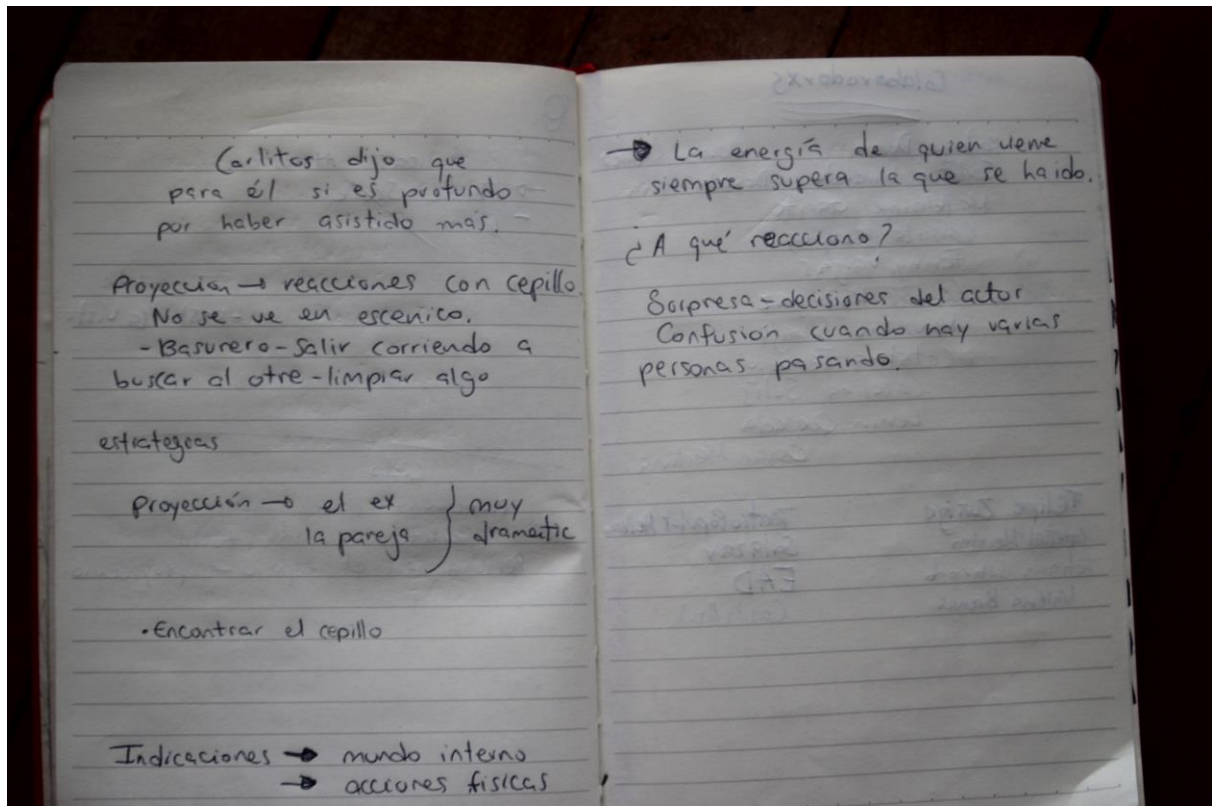 Carlitos dijo que
para él si es profundo
por haber asistido más.
Proyección → reacciones con cepillo.
No se ve en escenico.
- Basurero - Salir corriendo a
buscar al otre - limpiar algo
estrategias
Proyección → el ex
la pareja } muy
dramatic
• Encontrar el cepillo
Indicaciones → mundo interno
→ acciones físicas
→ La energía de quien viene
siempre supera la que se ha ido.
¿A qué reacciono?
Sorpresa - decisiones del actor
Confusión cuando hay varias
personas pasando.